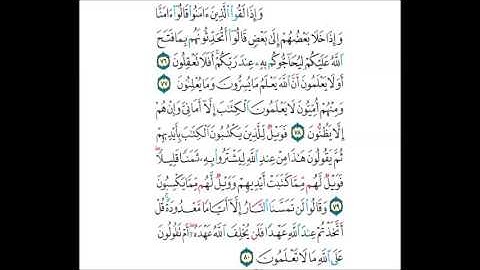 وَإِذَا لَقُوا۟ ٱلَّذِينَ ءَامَنُوا۟ قَالُوٓا۟ ءَامَنَّا
وَإِذَا خَلَا بَعْضُهُمْ إِلَىٰ بَعْضٍ قَالُوٓا۟ أَتُحَدِّثُونَهُم بِمَا فَتَحَ
ٱللَّهُ عَلَيْكُمْ لِيُحَآجُّوكُم بِهِۦ عِندَ رَبِّكُمْ أَفَلَا تَعْقِلُونَ ٧٦
أَوَلَا يَعْلَمُونَ أَنَّ ٱللَّهَ يَعْلَمُ مَا يُسِرُّونَ وَمَا يُعْلِنُونَ ٧٧
وَمِنْهُمْ أُمِّيُّونَ لَا يَعْلَمُونَ ٱلْكِتَٰبَ إِلَّآ أَمَانِىَّ وَإِنْ هُمْ
إِلَّا يَظُنُّونَ ٧٨ فَوَيْلٌ لِّلَّذِينَ يَكْتُبُونَ ٱلْكِتَٰبَ بِأَيْدِيهِمْ
ثُمَّ يَقُولُونَ هَٰذَا مِنْ عِندِ ٱللَّهِ لِيَشْتَرُوا۟ بِهِۦ ثَمَنًا قَلِيلًا
فَوَيْلٌ لَّهُم مِّمَّا كَتَبَتْ أَيْدِيهِمْ وَوَيْلٌ لَّهُم مِّمَّا يَكْسِبُونَ
٧٩ وَقَالُوا۟ لَن تَمَسَّنَا ٱلنَّارُ إِلَّآ أَيَّامًا مَّعْدُودَةً قُلْ
أَتَّخَذْتُمْ عِندَ ٱللَّهِ عَهْدًا فَلَن يُخْلِفَ ٱللَّهُ عَهْدَهُۥٓ أَمْ تَقُولُونَ
عَلَى ٱللَّهِ مَا لَا تَعْلَمُونَ ٨٠